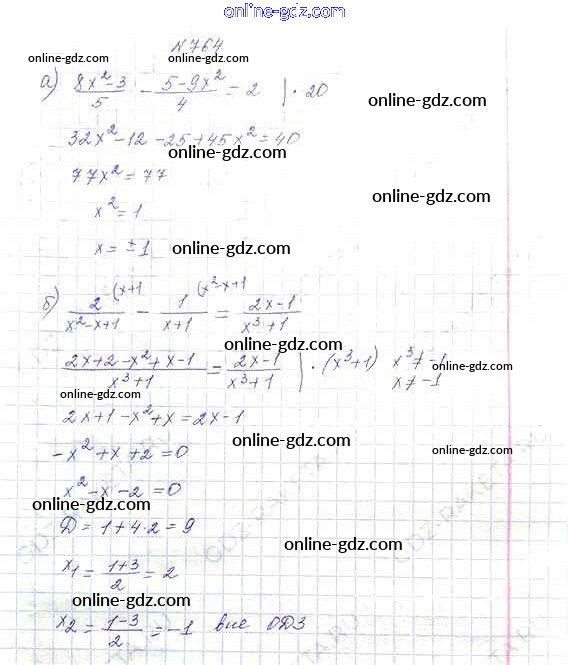 online-gdz.com
№764
online-gdz.com
а) (8x²-3)/5 - (5-9x²)/4 = 2 | · 20
online-gdz.com
32x² - 12 - 25 + 45x² = 40
online-gdz.com
77x² = 77
online-gdz.com
x² = 1
x = ± 1 online-gdz.com
б) 2/(x²-x+1) (x+1 - 1/(x+1) (x²-x+1 = (2x-1)/(x³+1)
(2x+2-x²+x-1)/(x³+1) = (2x-1)/(x³+1) | · (x³+1) x³ ≠ -1
online-gdz.com
x ≠ -1
online-gdz.com
2x+1-x²+x = 2x-1
online-gdz.com
-x²+x+2 = 0
online-gdz.com
x²-x-2 = 0
online-gdz.com
Д = 1+4·2 = 9
online-gdz.com
x₁ = (1+3)/2 = 2
online-gdz.com
x₂ = (1-3)/2 = -1 вне ОДЗ
online-gdz.com